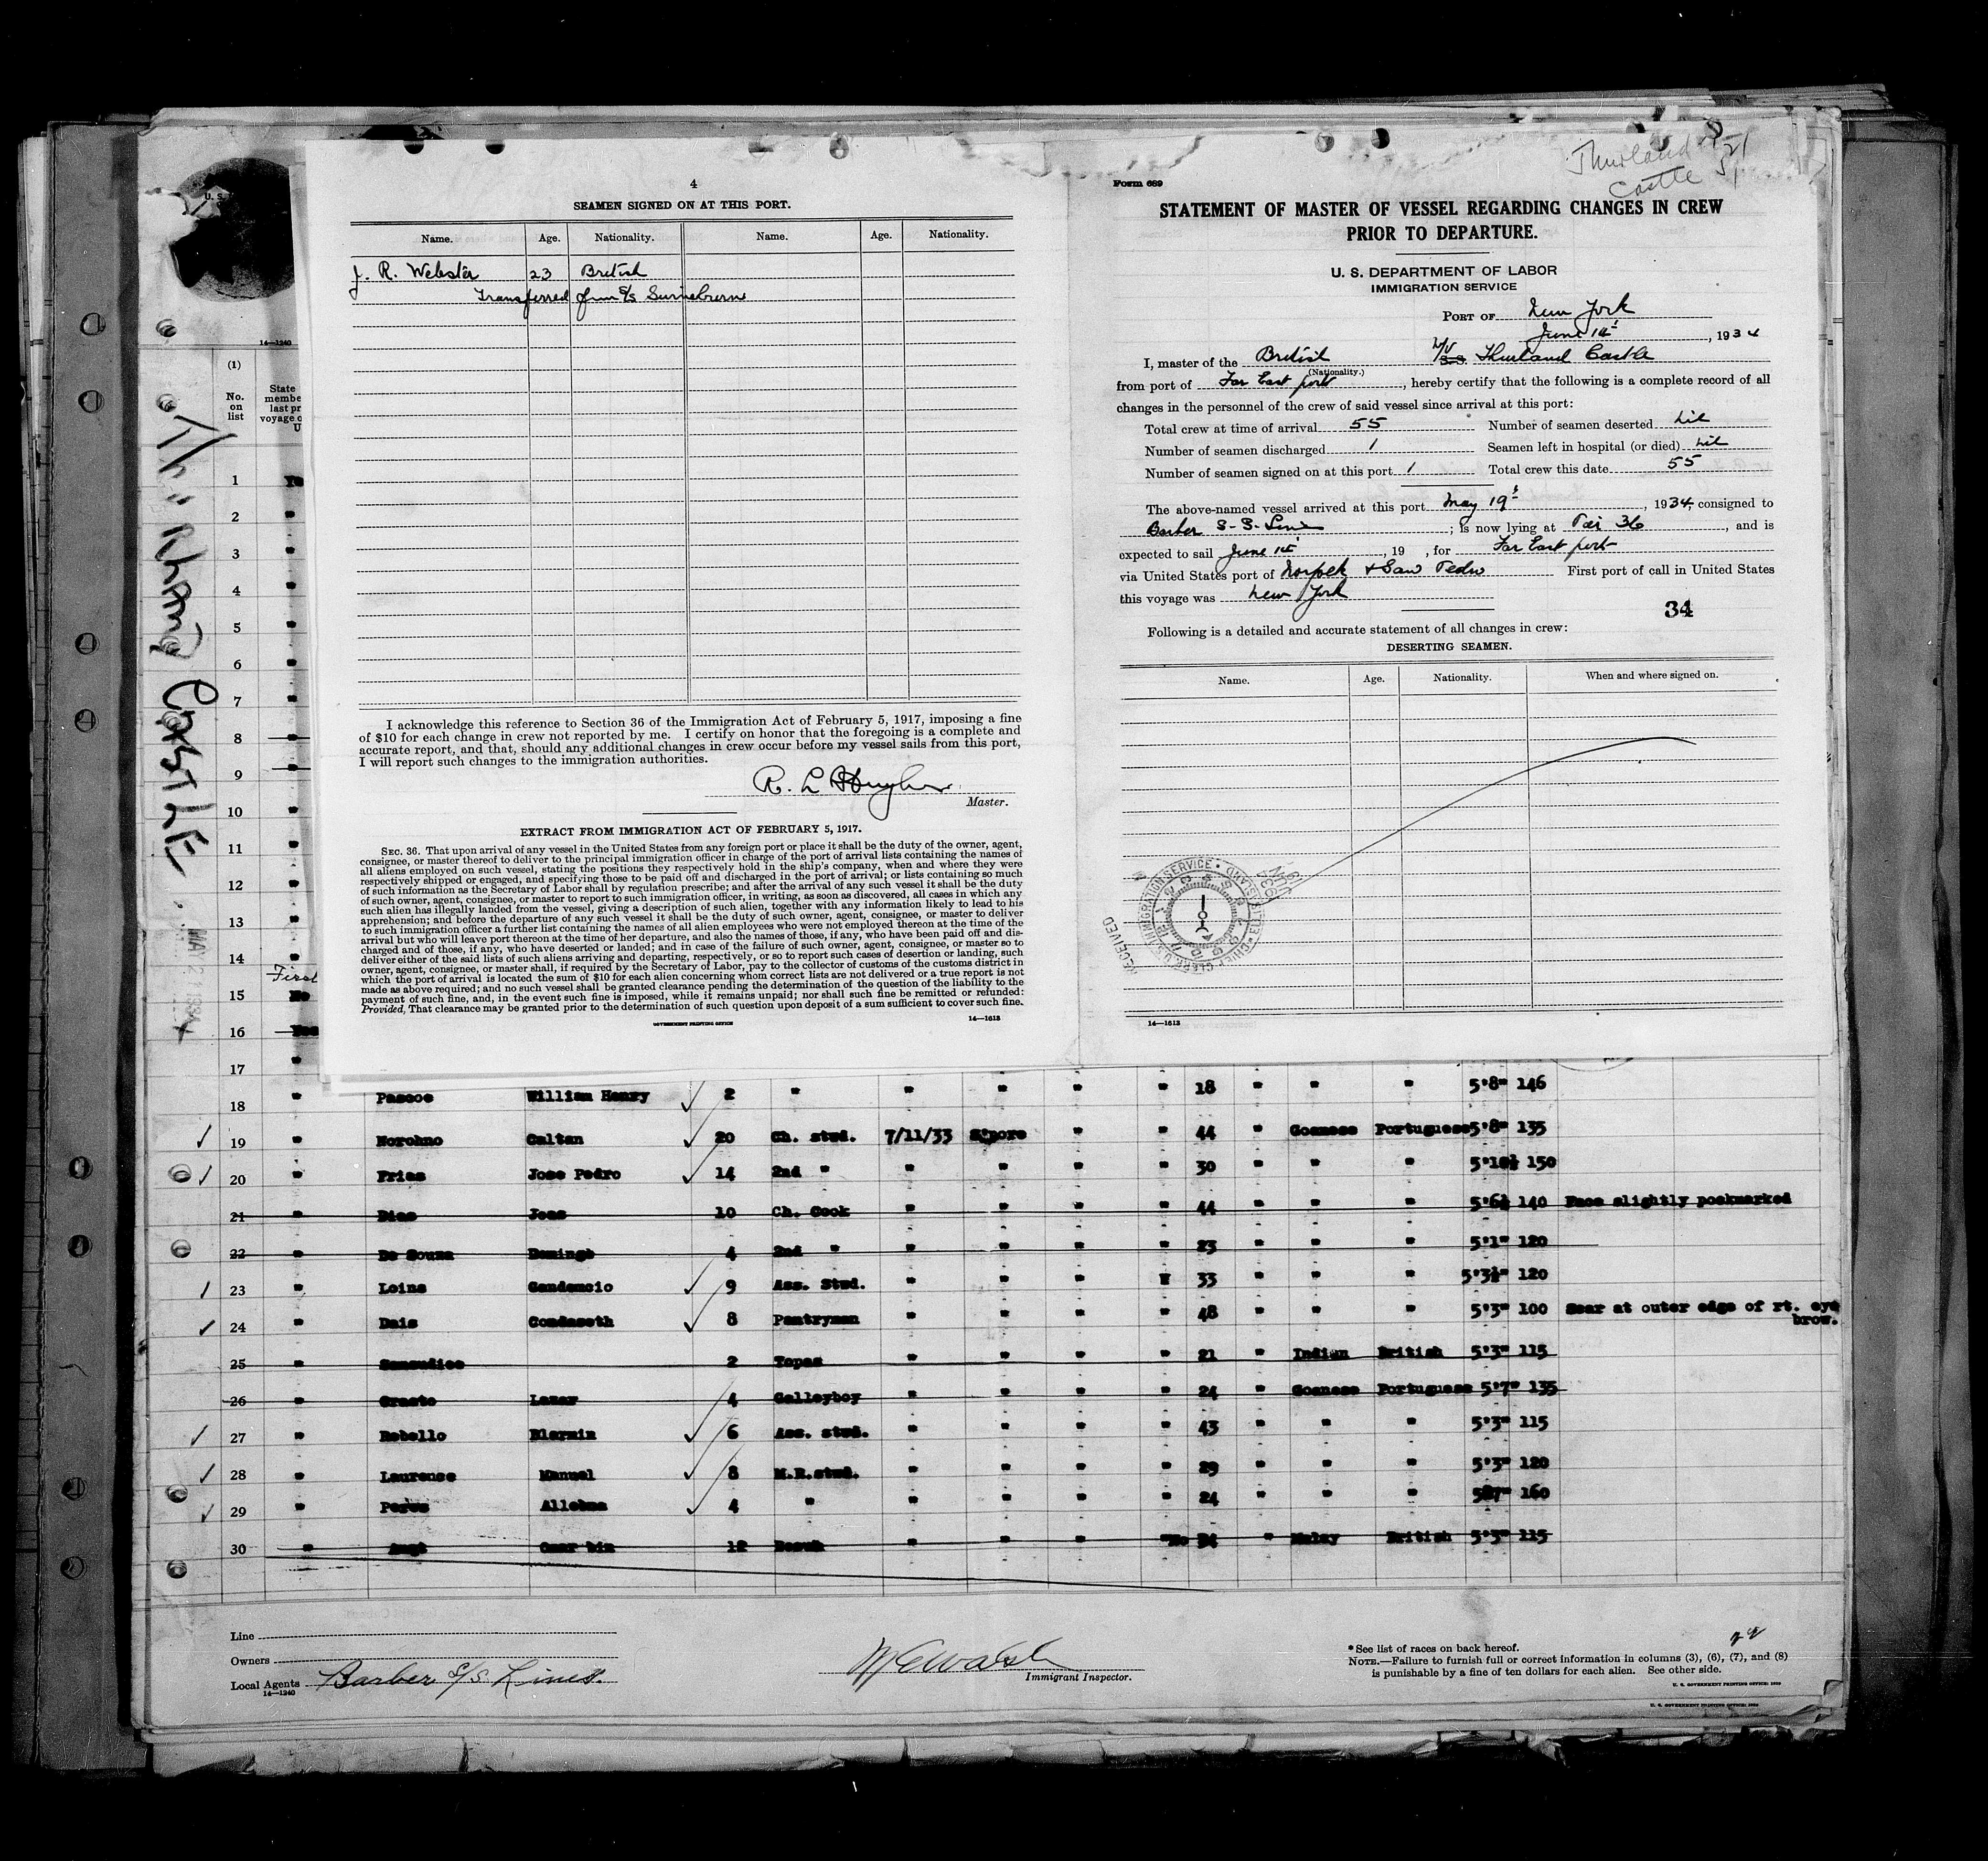 4
SEAMEN SIGNED ON AT THIS PORT.
Name. Age. Nationality. Name. Age. Nationality.
J. R. Webster 23 British
Transferred from S/S
I acknowledge this reference to Section 36 of the Immigration Act of February 5, 1917, imposing a fine
of $10 for each change in crew not reported by me. I certify on honor that the foregoing is a complete and
accurate report, and that, should any additional changes in crew occur before my vessel sails from this port,
I will report such changes to the immigration authorities.
R. L. Hughes
Master.
EXTRACT FROM IMMIGRATION ACT OF FEBRUARY 5, 1917.
SEC. 36. That upon arrival of any vessel in the United States from any foreign port or place it shall be the duty of the owner, agent,
consignee, or master thereof to deliver to the principal immigration officer in charge of the port of arrival lists containing the names of
all aliens employed on such vessel, stating the positions they respectively hold in the ship's company, when and where they were
respectively shipped or engaged, and specifying those to be paid off and discharged in the port of arrival; or lists containing so much
of such information as the Secretary of Labor shall by regulation prescribe; and after the arrival of any such vessel it shall be the duty
of such owner, agent, consignee, or master to report to such immigration officer, in writing, as soon as discovered, all cases in which any
such alien has illegally landed from the vessel, giving a description of such alien, together with any information likely to lead to his
apprehension; and before the departure of any such vessel it shall be the duty of such owner, agent, consignee, or master to deliver
to such immigration officer a further list containing the names of all alien employees who were not employed thereon at the time of the
arrival but who will leave port thereon at the time of her departure, and also the names of those, if any, who have been paid off and dis-
charged and of those, if any, who have deserted or landed; and in case of the failure of such owner, agent, consignee, or master so to
deliver either of the said lists of such aliens arriving and departing, respectively, or so to report such cases of desertion or landing, such
owner, agent, consignee, or master shall, if required by the Secretary of Labor, pay to the collector of customs of the customs district in
which the port of arrival is located the sum of $10 for each alien concerning whom correct lists are not delivered or a true report is not
made as above required; and no such vessel shall be granted clearance pending the determination of the question of the liability to the
payment of such fine, and, in the event such fine is imposed, while it remains unpaid; nor shall such fine be remitted or refunded:
Provided, That clearance may be granted prior to the determination of such question upon deposit of a sum sufficient to cover such fine.
GOVERNMENT PRINTING OFFICE 14—1613
Thurland Castle 5/21
Form 689
STATEMENT OF MASTER OF VESSEL REGARDING CHANGES IN CREW
PRIOR TO DEPARTURE.
U. S. DEPARTMENT OF LABOR
IMMIGRATION SERVICE
PORT OF New York
June 1st, 1934
I, master of the British M/V S.S. Thurland Castle
(Nationality.)
from port of Far East port, hereby certify that the following is a complete record of all
changes in the personnel of the crew of said vessel since arrival at this port:
Total crew at time of arrival 55 Number of seamen deserted Nil
Number of seamen discharged 1 Seamen left in hospital (or died) Nil
Number of seamen signed on at this port 1 Total crew this date 55
The above-named vessel arrived at this port May 19t, 1934, consigned to
Barber S.S. Line; is now lying at Pier 36, and is
expected to sail June 1st, 19 , for Far East port
via United States port of Norfolk + San Pedro First port of call in United States
this voyage was New York
34
Following is a detailed and accurate statement of all changes in crew:
DESERTING SEAMEN.
Name. Age. Nationality. When and where signed on.
RECEIVED
U.S. IMMIGRATION SERVICE
CHIEF CLERK
JUN 1934
14—1613
U. S.
14—1240
(1)
No. on list
State
membe
last pr
voyage o
U
CASTLE
MAY 21 1934
1 Ye
2 "
3 "
4 "
5 "
6 "
7 "
8 "
9 "
10 "
11 "
12 "
13 "
14 "
First
15 No
16 Yes
17 "
18 " Pascoe William Henry 2 " " " " " 18 " " " 5'8" 146
19 " Norohno Caltan 20 Ch. stwd. 7/11/33 S'pore " " 44 " Goanese Portuguese 5'8" 135
20 " Frias Jose Pedro 14 2nd " " " " " 30 " " " 5'10½ 150
21 " Dias Joas 10 Ch. Cook " " " " 44 " " " 5'6½ 140 Face slightly pockmarked
22 " De Souza Domingo 4 2nd " " " " " 23 " " " 5'1" 120
23 " Loins Gandencio 9 Ass. Stwd. " " " " 33 " " " 5'3½" 120
24 " Dais Condaseth 8 Pantryman " " " " 48 " " " 5'3" 100 Scar at outer edge of rt. eye
brow.
25 " 2 Topaz " " " " 21 " Indian British 5'3" 115
26 " Crasto Lazar 4 Galleyboy " " " " 24 " Goanese Portuguese 5'7" 135
27 " Rebello 6 Ass. stwd. " " " " 43 " " " 5'3" 115
28 " Laurence Manuel 8 M.R.stwd. " " " " 29 " " " 5'3" 120
29 " 4 " " " " " 24 " " " 160
30 " Omar bin 12 " " " No 34 " Malay British 5'3" 115
Line
Owners
Local Agents Barber S/S Lines.
14—1240
Immigrant Inspector.
* See list of races on back hereof.
NOTE.—Failure to furnish full or correct information in columns (3), (6), (7), and (8)
is punishable by a fine of ten dollars for each alien. See other side.
U. S. GOVERNMENT PRINTING OFFICE:
U. S. GOVERNMENT PRINTING OFFICE: